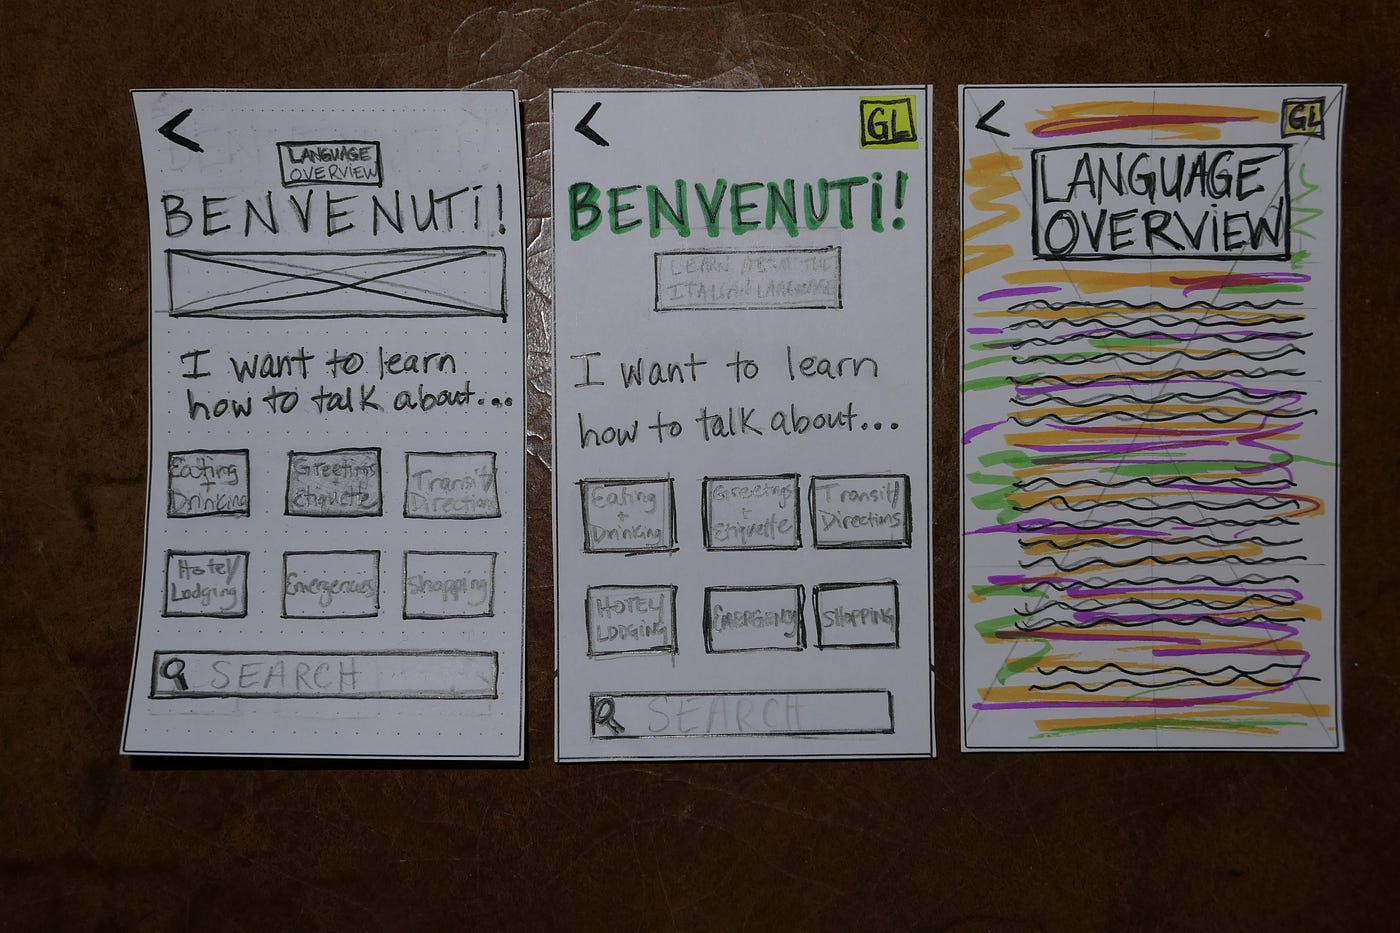 <
LANGUAGE
OVERVIEW
BENVENUTI!
I want to learn
how to talk about...
Eating
+
Drinking
Greetings
+
Etiquette
Transit/
Directions
Hotel/
Lodging
Emergencies
Shopping
SEARCH
<
GL
BENVENUTI!
LEARN ABOUT THE
ITALIAN LANGUAGE
I want to learn
how to talk about...
Eating
+
Drinking
Greetings
+
Etiquette
Transit/
Directions
HOTEL/
LODGING
EMERGENCY
SHOPPING
SEARCH
<
GL
LANGUAGE
OVERVIEW